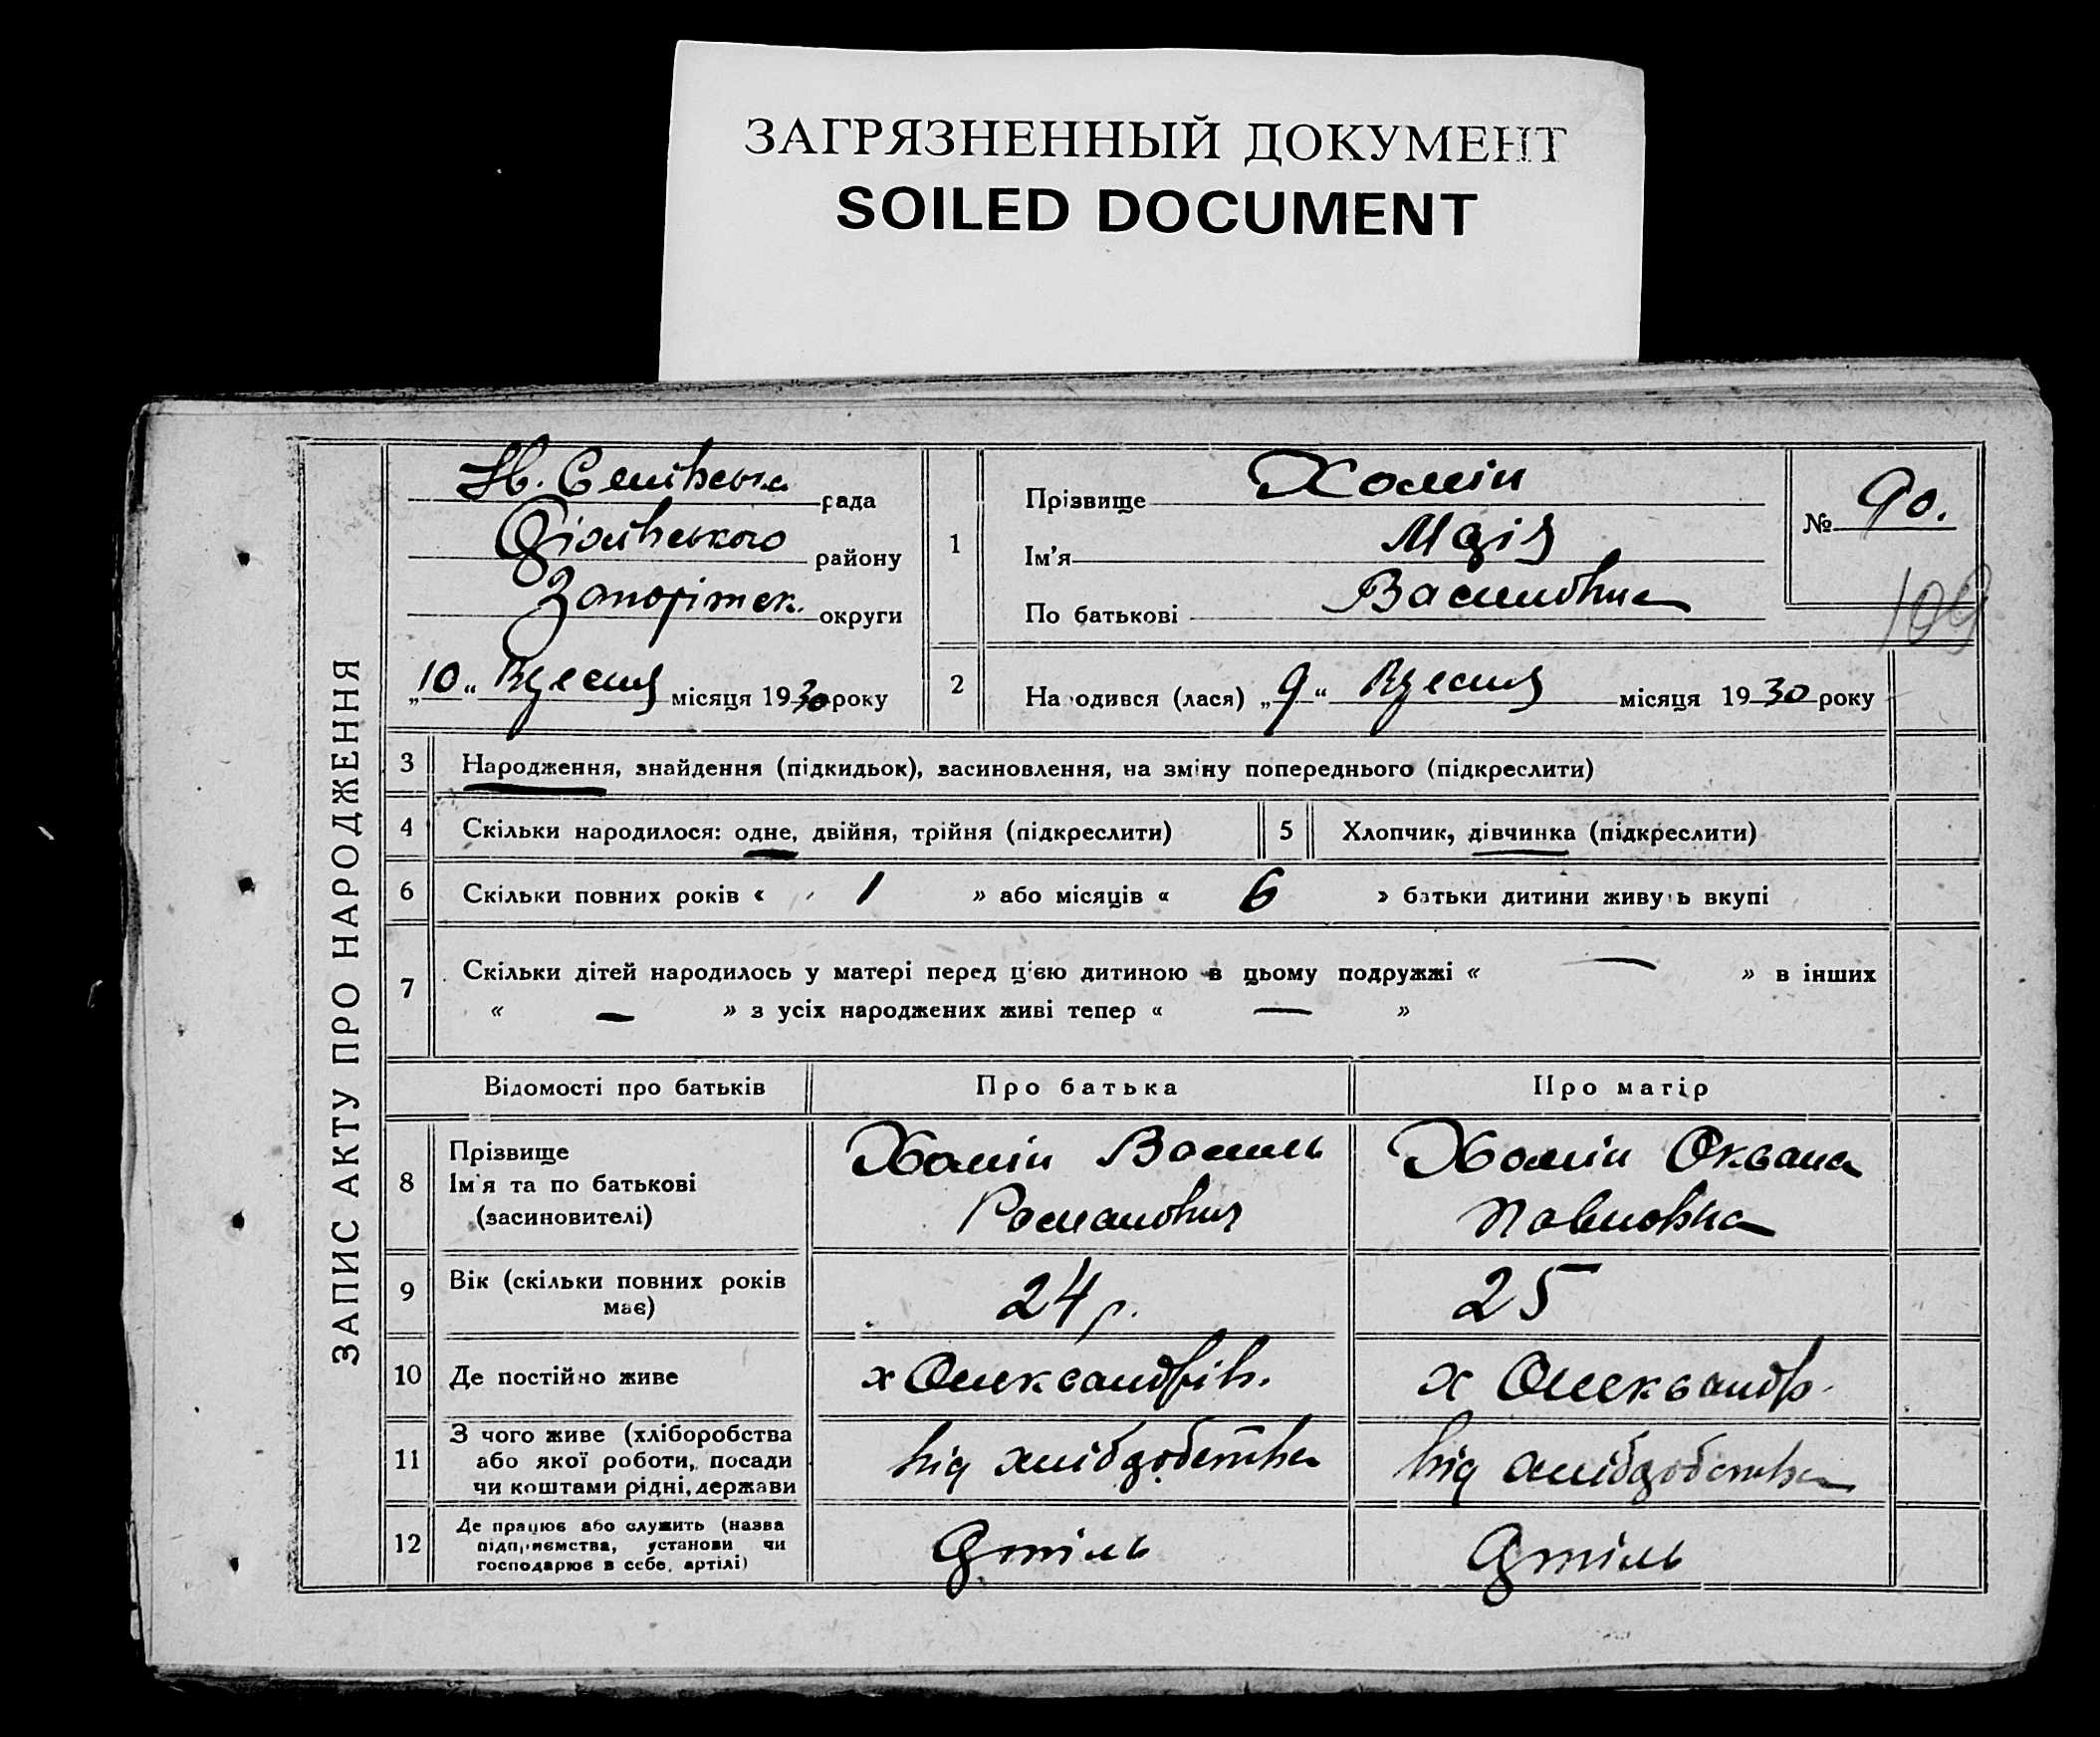 ЗАГРЯЗНЕННЫЙ ДОКУМЕНТ
SOILED DOCUMENT
ЗАПИС АКТУ ПРО НАРОДЖЕННЯ
рада
району
Запоріжск. округи
„10“ Вересня місяця 1930 року
1
Прізвище Хомін
Ім'я Марія
По батькові Василівна
№ 90.
109
2
На одився (лася) „9“ Вересня місяця 1930 року
3 Народження, знайдення (підкидьок), засиновлення, на зміну попереднього (підкреслити)
4 Скільки народилося: одне, двійня, трійня (підкреслити)
5 Хлопчик, дівчинка (підкреслити)
6 Скільки повних років « 1 » або місяців « 6 » батьки дитини живуть вкупі
7 Скільки дітей народилось у матері перед ц'єю дитиною в цьому подружжі « — » в інших
« — » з усіх народжених живі тепер « — »
Відомості про батьків Про батька Про матір
8 Прізвище
Ім'я та по батькові
(засиновителі)
Хомін Василь
Романович
Хомін Оксана
Павловна
9 Вік (скільки повних років
має)
24 р.
25
10 Де постійно живе
х Олександрів.
х Олександр.
11 З чого живе (хліборобства
або якої роботи, посади
чи коштами рідні, держави
від хліборобства
від хліборобства
12 Де працює або служить (назва
підприємства, установи чи
господарює в себе, артілі)
Артіль
Артіль